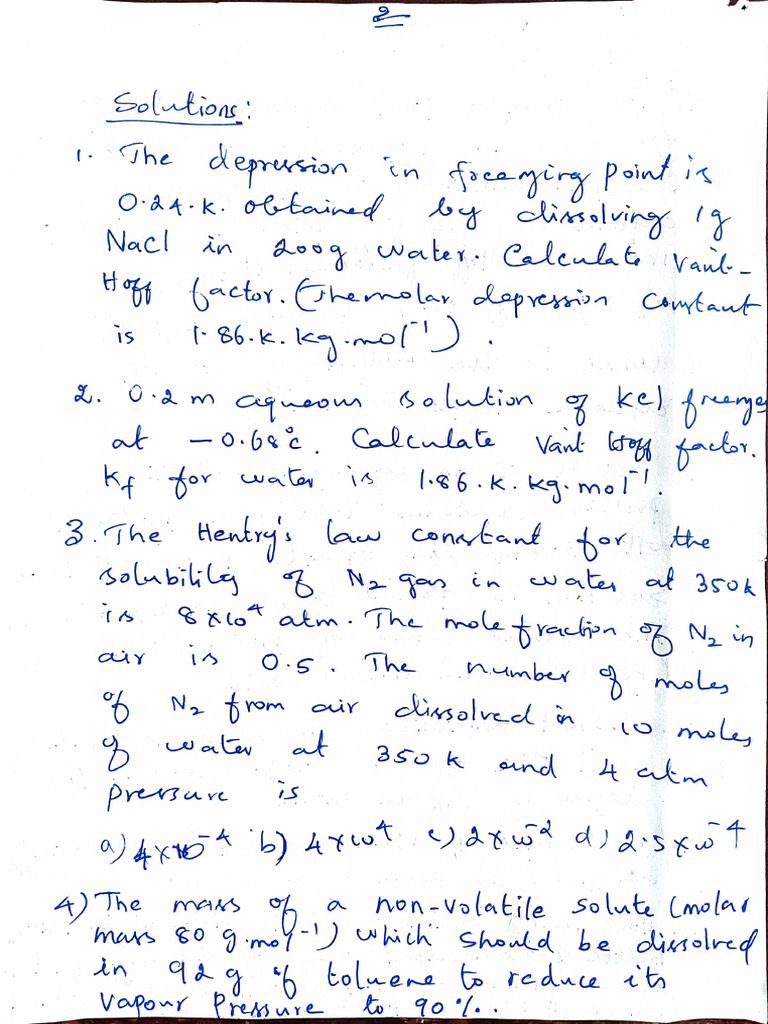 2
Solutions:
1. The depression in freezing point is
0.24.K. obtained by dissolving 1g
NaCl in 200g water. Calculate Vant-
Hoff factor. (The molar depression constant
is 1.86.K.kg.mol⁻¹).
2. 0.2 m aqueous solution of KCl freezes
at -0.68°C. Calculate Vant Hoff factor.
Kf for water is 1.86.K.kg.mol⁻¹.
3. The Hentry's law constant for the
solubility of N₂ gas in water at 350K
is 8×10⁴ atm. The mole fraction of N₂ in
air is 0.5. The number of moles
of N₂ from air dissolved in 10 moles
of water at 350K and 4 atm
pressure is
a) 4×10⁻⁴ b) 4×10⁴ c) 2×10⁻² d) 2.5×10⁻⁴
4) The mass of a non-volatile solute (molar
mass 80 g.mol⁻¹) which should be dissolved
in 92 g of toluene to reduce its
Vapour Pressure to 90%.